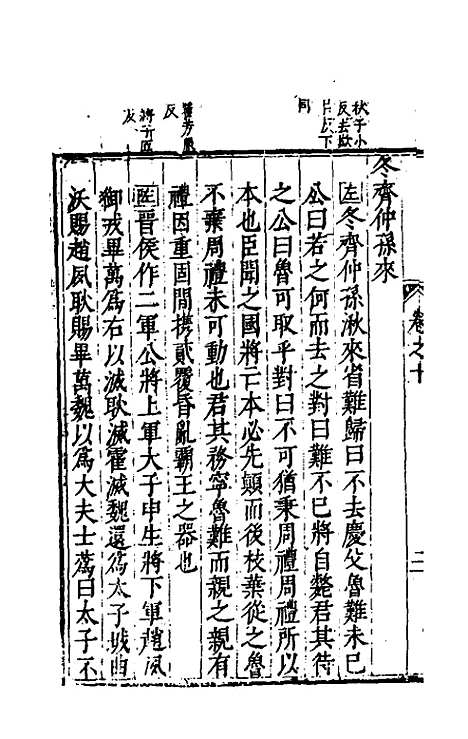 卷之十
二
冬齊仲孫來
左冬齊仲孫湫來省難歸曰不去慶父魯難未已
公曰若之何而去之對曰難不已將自斃君其待
之公曰魯可取乎對曰不可猶秉周禮周禮所以
本也臣聞之國將亡本必先顛而後枝葉從之魯
不棄周禮未可動也君其務寧魯難而親之親有
禮因重固間攜貳覆昏亂霸王之器也
晉侯作二軍公將上軍大子申生將下軍趙夙
御戎畢萬為右以滅耿滅霍滅魏還為太子城曲
沃賜趙夙耿賜畢萬魏以為大夫士蒍曰太子不